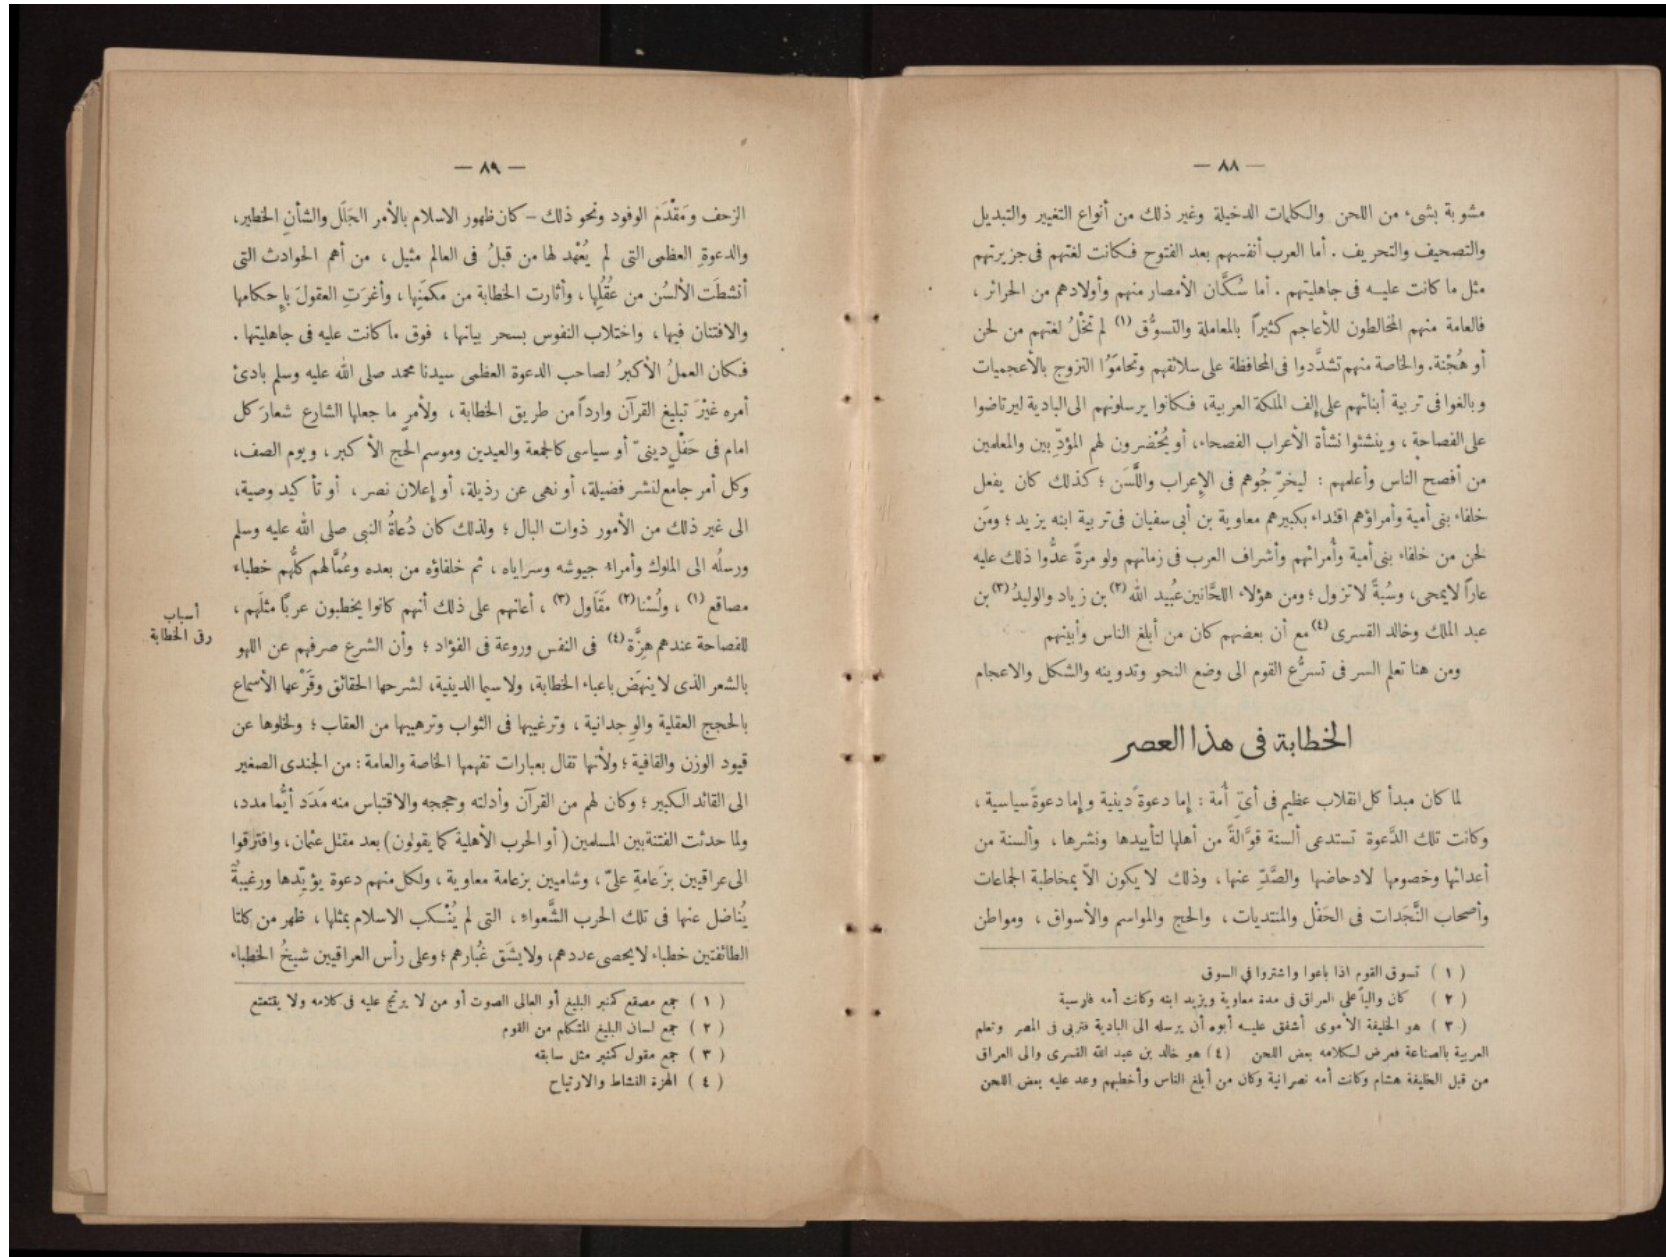 — ٨٨ —
مشوبة بشىء من اللحن والكلمات الدخيلة وغير ذلك من أنواع التغيير والتبديل
والتصحيف والتحريف . أما العرب أنفسهم بعد الفتوح فكانت لغتهم فى جزيرتهم
مثل ما كانت عليه فى جاهليتهم . أما سُكَّان الأمصار منهم وأولادهم من الحرائر ،
فالعامة منهم المخالطون للأعاجم كثيراً بالمعاملة والتسوُّق (١) لم تخْلُ لغتهم من لحن
أو هُجْنة. والخاصة منهم تشدَّدوا فى المحافظة على سلائقهم وتحامَوُا التزوج بالأعجميات
وبالغوا فى تربية أبنائهم على إلف الملَكة العربية، فكانوا يرسلونهم الى البادية ليرتاضوا
على الفصاحة ، وينشئوا نشأة الأعراب الفصحاء، أو يُحْضرون لهم المؤدِّبين والمعلمين
من أفصح الناس وأعلمهم : ليخرّجُوهم فى الإعراب واللَّسَن ؛ كذلك كان يفعل
خلفاء بنى أمية وأمراؤهم اقتداء بكبيرهم معاوية بن أبى سفيان فى تربية ابنه يزيد ؛ ومَن
لحن من خلفاء بنى أمية وأُمرائهم وأشراف العرب فى زمانهم ولو مرةً عدُّوا ذلك عليه
عاراً لايمحى، وسُبةً لا تزول ؛ ومن هؤلاء اللحَّانين عُبيد الله (٢) بن زياد والوليدُ (٣) بن
عبد الملك وخالد القسرى (٤) مع أن بعضهم كان من أبلغ الناس وأبينهم
ومن هنا تعلم السر فى تسرُّع القوم الى وضع النحو وتدوينه والشكل والاعجام
الخطابة فى هذا العصر
لما كان مبدأ كل انقلاب عظيم فى أىّ أُمة : إما دعوةً دينية وإما دعوةً سياسية ،
وكانت تلك الدَّعوة تستدعى ألسنة قوَّالةً من أهلها لتأييدها ونشرها ، وألسنة من
أعدائها وخصومها لادحاضها والصَّدِّ عنها ، وذلك لا يكون الاّ بمخاطبة الجماعات
وأصحاب النَّجَدات فى الحَفْل والمنتديات ، والحج والمواسم والأسواق ، ومواطن
( ١ ) تسوق القوم اذا باعوا واشتروا في السوق
( ٢ ) كان والياً على العراق فى مدة معاوية ويزيد ابنه وكانت أمه فارسية
( ٣ ) هو الخليفة الأموى أشفق عليه أبوه أن يرسله الى البادية فتربى فى المصر وتعلم
العربية بالصناعة فعرض لكلامه بعض اللحن ( ٤ ) هو خالد بن عبد الله القسرى والى العراق
من قبل الخليفة هشام وكانت أمه نصرانية وكان من أبلغ الناس وأخطبهم وعد عليه بعض اللحن
— ٨٩ —
الزحف ومَقْدَم الوفود ونحو ذلك – كان ظهور الاسلام بالأمر الجَلَل والشأنِ الخطير،
والدعوةِ العظمى التى لم يُعْهد لها من قبلُ فى العالم مثيل ، من أهم الحوادث التى
أنشطَت الألسُن من عُقُلِها ، وأثارت الخطابة من مكمَنِها ، وأغرَتِ العقولَ بإحكامها
والافتنان فيها ، واختلاب النفوس بسحر بيانها ، فوق ما كانت عليه فى جاهليتها .
فكان العملُ الأكبرُ لصاحب الدعوة العظمى سيدنا محمد صلى الله عليه وسلم بادئ
أمره غيْرَ تبليغ القرآن وارداً من طريق الخطابة ، ولأمرٍ ما جعلها الشارع شعارَ كل
امام فى حَفْلٍ دينىّ أو سياسى كالجمعة والعيدين وموسم الحج الأكبر ، ويوم الصف،
وكل أمر جامع لنشر فضيلة، أو نهى عن رذيلة، أو إعلان نصر ، أو تأكيد وصية،
الى غير ذلك من الأمور ذوات البال ؛ ولذلك كان دُعاةُ النبى صلى الله عليه وسلم
ورسلُه الى الملوك وأمراء جيوشه وسراياه ، ثم خلفاؤه من بعده وعُمَّالهم كلُّهم خطباء
مصاقع (١) ، ولُسْنا (٢) مقَاول (٣) ، أعانهم على ذلك أنهم كانوا يخطبون عربًا مثلَهم ،
أسباب
رقى الخطابة
للفصاحة عندهم هِزَّة (٤) فى النفس وروعة فى الفؤاد ؛ وأن الشرع صرفهم عن اللهو
بالشعر الذى لا ينهَض باعباء الخطابة، ولا سيما الدينية، لشرحها الحقائق وقَرْعها الأسماع
بالحجج العقلية والوجدانية ، وترغيبها فى الثواب وترهيبها من العقاب ؛ ولخلوها عن
قيود الوزن والقافية ؛ ولأنها تقال بعبارات تفهمها الخاصة والعامة : من الجندى الصغير
الى القائد الكبير ؛ وكان لهم من القرآن وأدلته وحججه والاقتباس منه مَدَد أيُّما مدد،
ولما حدثت الفتنة بين المسلمين ( أو الحرب الأهلية كما يقولون ) بعد مقتل عثمان، وافترقوا
الى عراقيين بزَعامةِ علىّ ، وشاميين بزعامة معاوية ، ولكل منهم دعوة يؤيّدها ورغيبةٌ
يُناضل عنها فى تلك الحرب الشَّعواءِ ، التى لم يُنْكب الاسلام بمثلها ، ظهر من كلتا
الطائفتين خطباء لا يحصى عددهم، ولا يشَق غُبارهم ؛ وعلى رأس العراقيين شيخُ الخطباء
( ١ ) جمع مصقع كمنبر البليغ أو العالى الصوت أو من لا يرتج عليه فى كلامه ولا يتتعتع
( ٢ ) جمع لسان البليغ المتكلم من القوم
( ٣ ) جمع مقول كمنبر مثل سابقه
( ٤ ) الهزة النشاط والارتياح